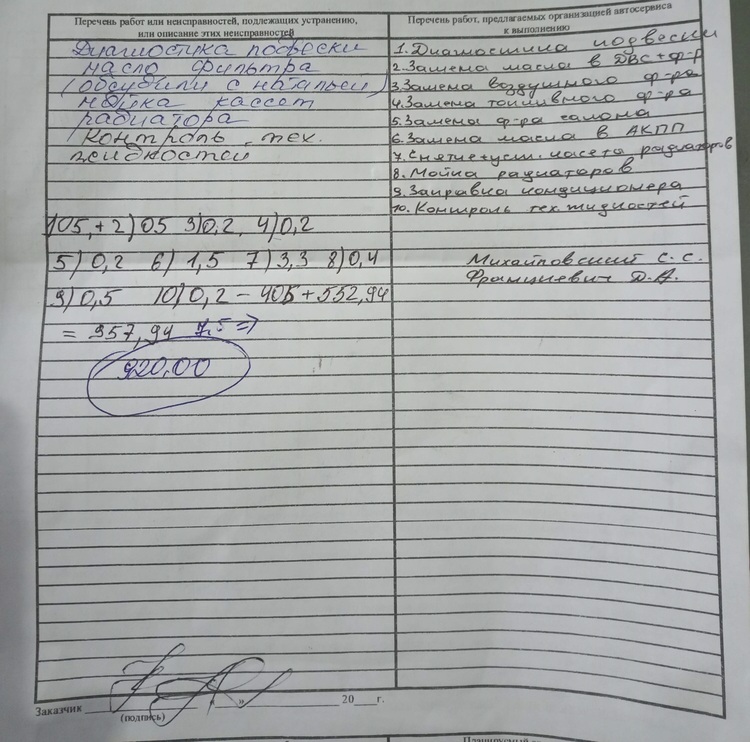 Перечень работ или неисправностей, подлежащих устранению,
или описание этих неисправностей
Диагностика подвески
масло фильтра
(обсудили с натальей)
мойка кассет
радиатора
контроль тех.
жидкостей
105,+2)05 3)0,2, 4)0,2
5)0,2 6)1,5 7)3,3 8)0,4
9)0,5 10)0,2 – 405+552,94
= 957,94
920,00
Перечень работ, предлагаемых организацией автосервиса
к выполнению
1. Диагностика подвески
2. Замена масла в ДВС+ф-р
3. Замена воздушного ф-ра
4. Замена топливного ф-ра
5. Замена ф-ра салона
6. Замена масла в АКПП
7. Снятие+уст. касета радиаторов
8. Мойка радиаторов
9. Заправка кондиционера
10. Контроль тех. жидкостей
Михайловский С.С.
Францкевич Д.А.
Заказчик "__" 20__г.
(подпись)